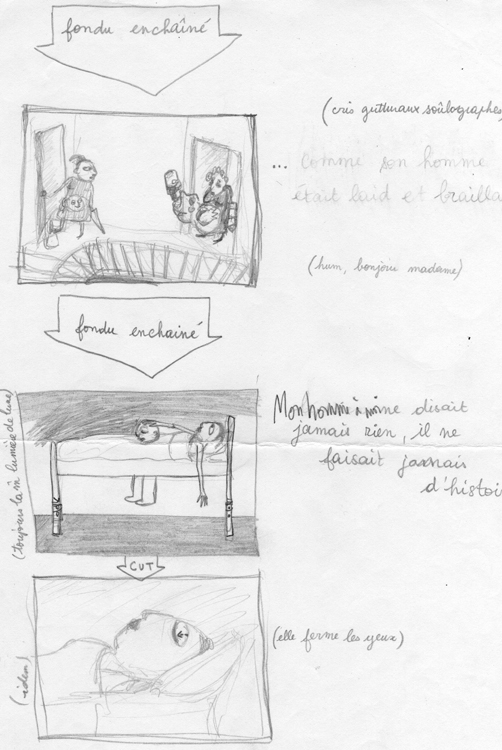 fondu enchaîné
(cris gutturaux soûlographes
... comme son homme
était laid et brailla
(hum, bonjour madame)
fondu enchainé
(toujours la m lumière de lune)
Mon homme à mine disait
jamais rien, il ne
faisait jamais
d'histoi
CUT
(idem)
(elle ferme les yeux)